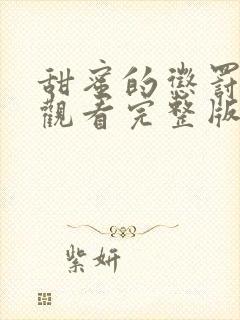 甜蜜的懲罰
觀看完整版
紫妍